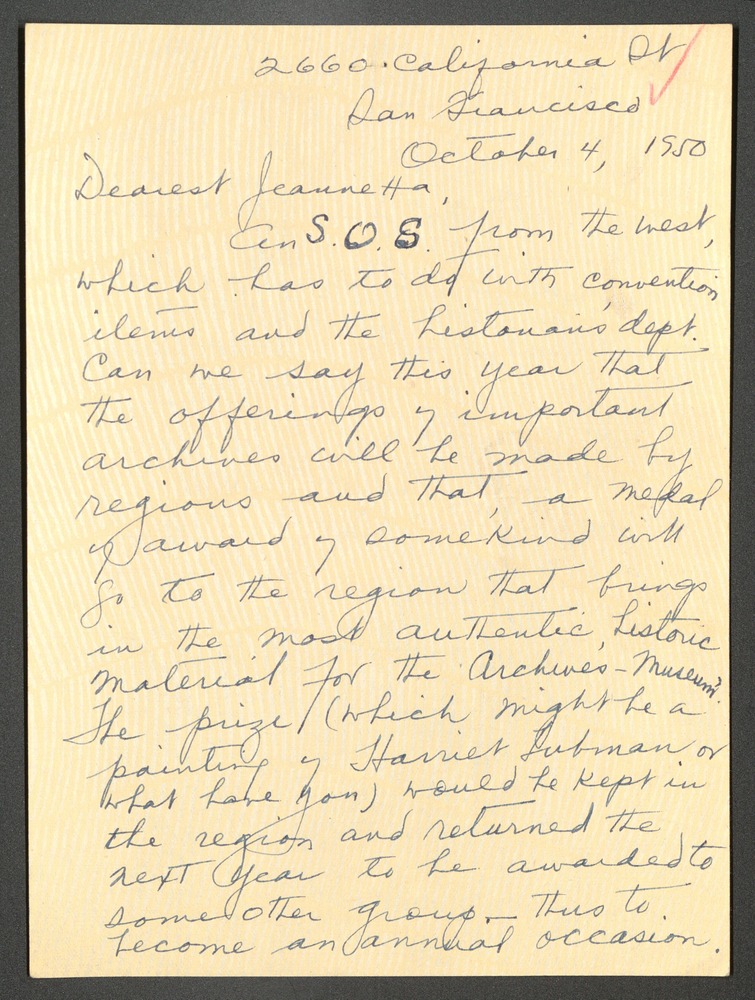 2660 · California St
San Francisco
October 4, 1950
Dearest Jeannetta,
An S.O.S. from the west,
which has to do with convention
items and the historian's dept.
Can we say this year that
the offerings of important
archives will be made by
regions and that, a medal
of award of some kind will
go to the region that brings
in the most authentic, historic
material for the Archives-Museum?
The prize (which might be a
painting of Harriet Tubman or
what have you) would be kept in
the region and returned the
next year to be awarded to
some other group - thus to
become an annual occasion.